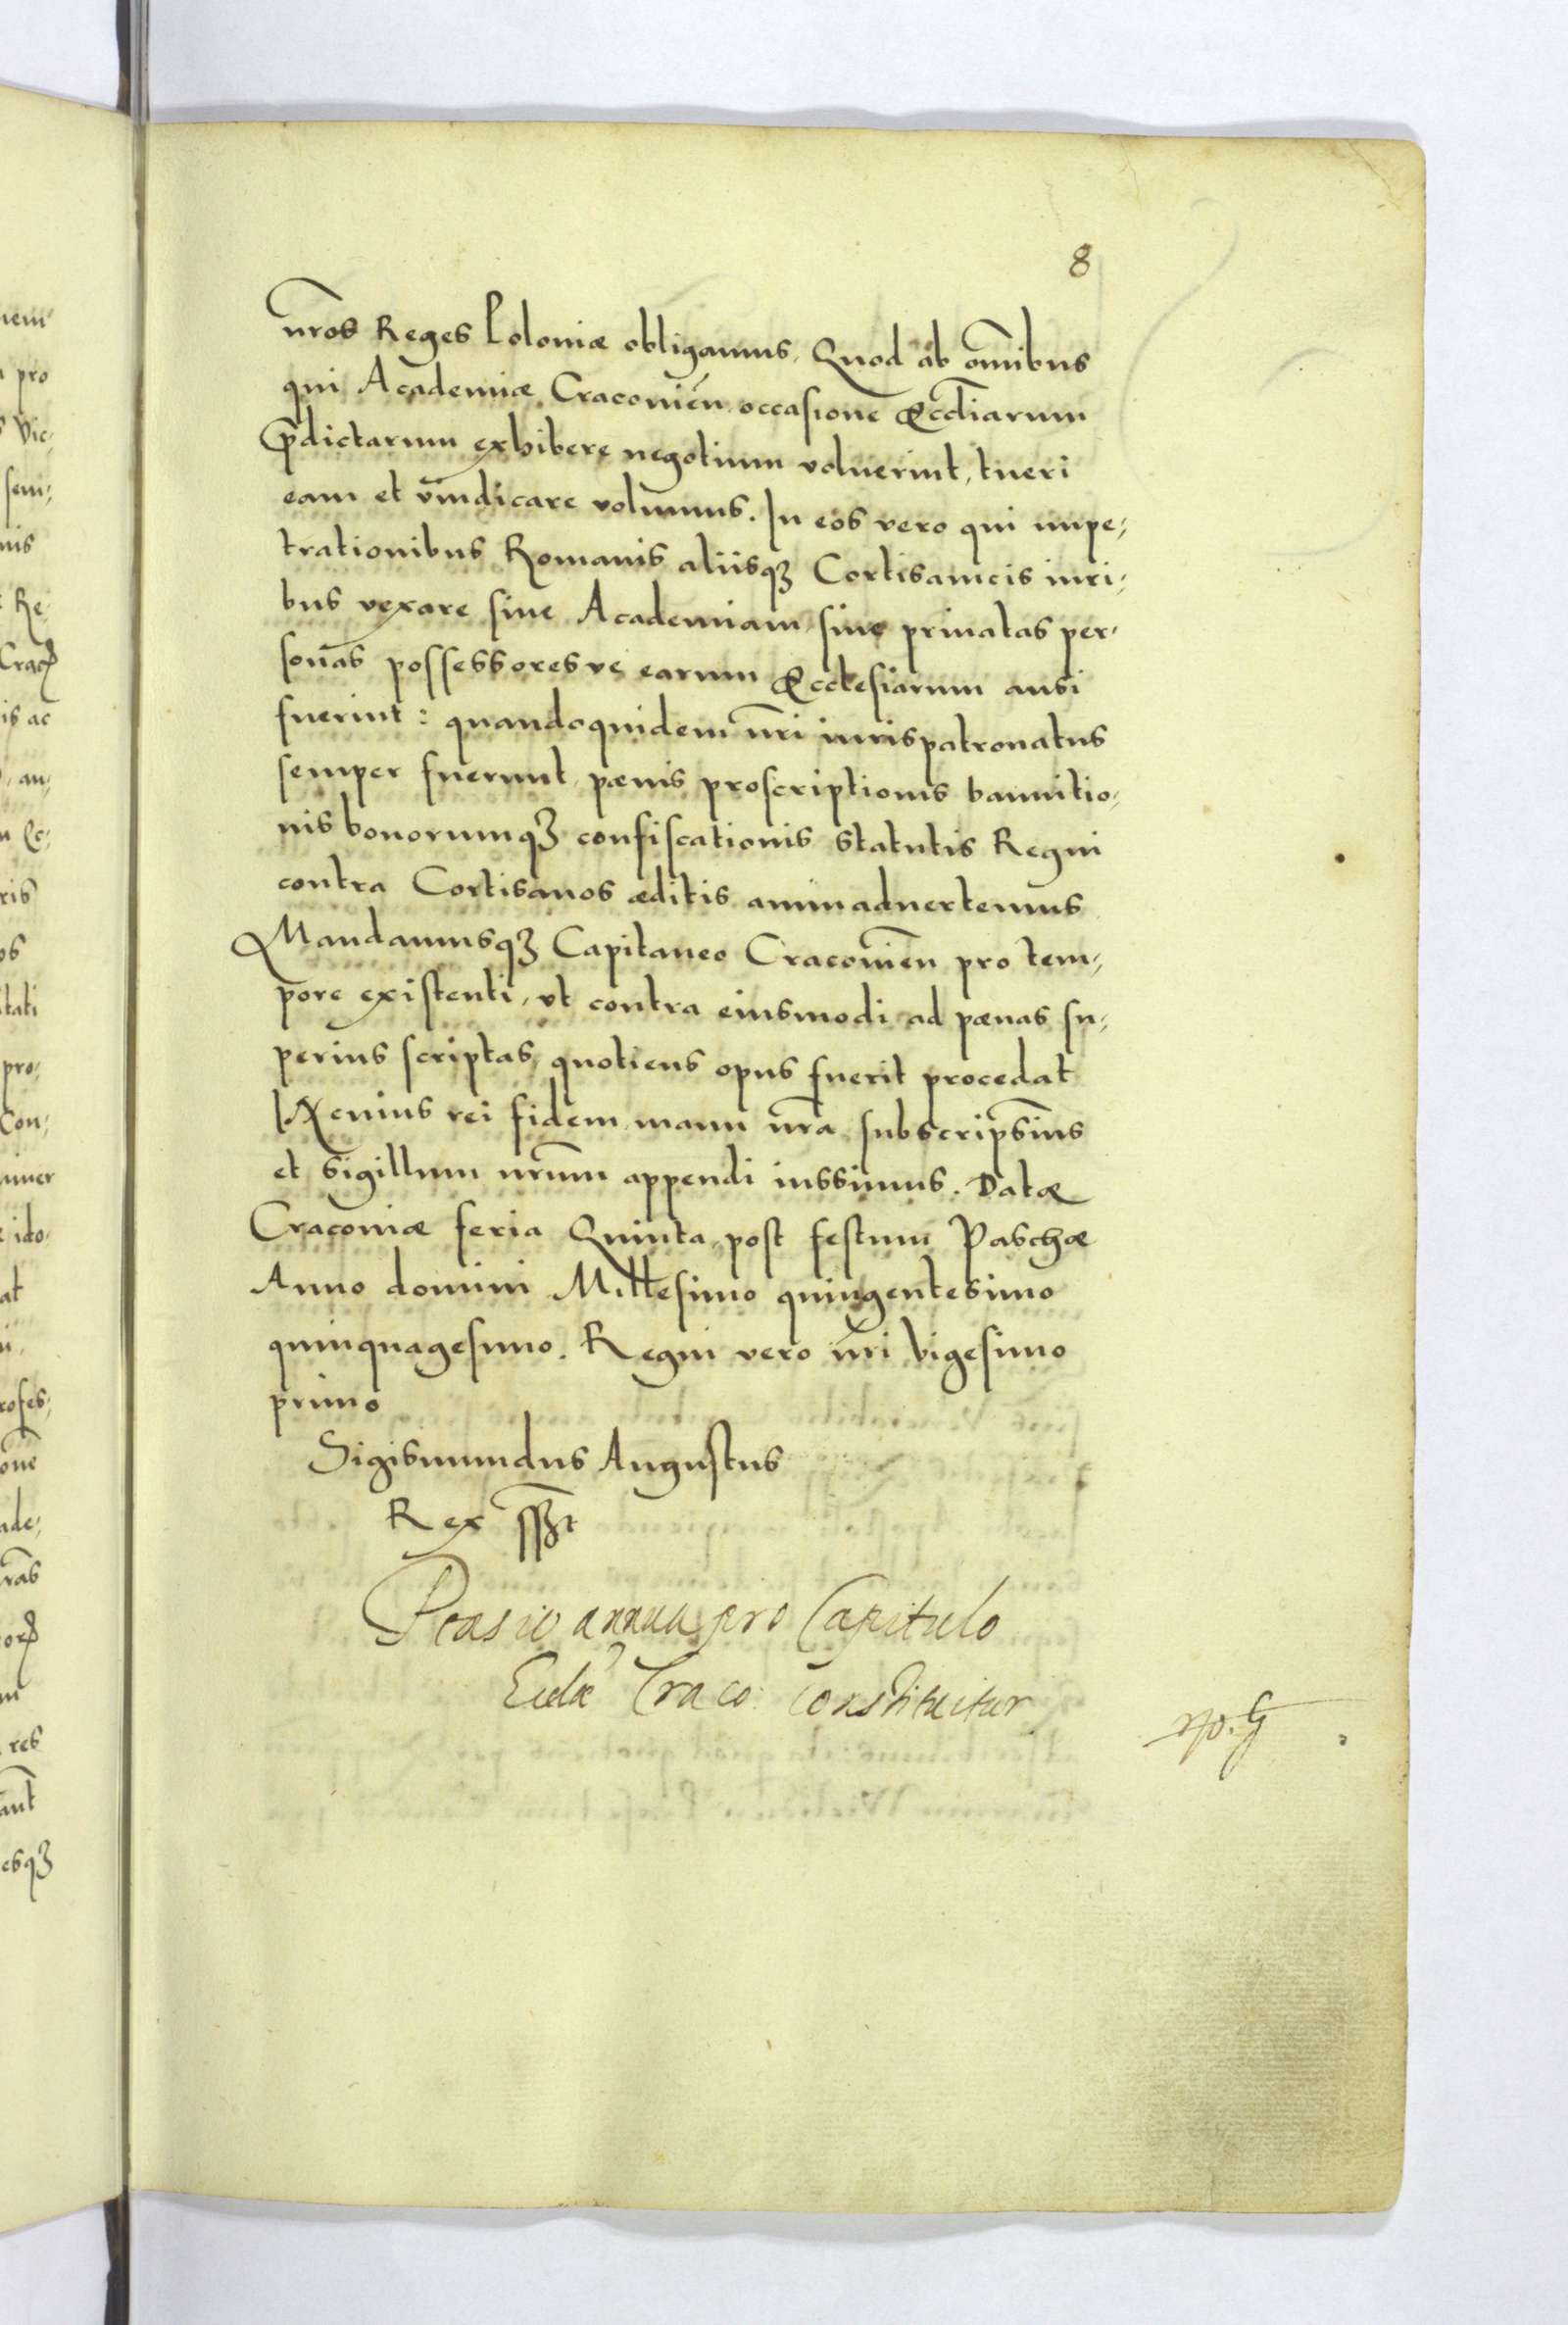 8
nr̃os Reges Poloniæ obligamus, Quod ab om̃ibus
qui Academiæ Cracovien̄ occasione Eccl̃iarum
p̃dictarum exhibere negotium voluerint, tueri
eam et vindicare volumus. In eos vero qui impe,
trationibus Romanis aliisqꝫ Cortisanicis iuri,
bus vexare siue Academiam siue priuatas per,
sonas possessoresve earum Ecclesiarum ausi
fuerint: quandoquidem nr̃i iurispatronatus
semper fuerunt, pænis proscriptionis bannitio,
nis bonorumqꝫ confiscationis statutis Regni
contra Cortisanos æditis animaduertemus
Mandamusqꝫ Capitaneo Cracovien̄ pro tem,
pore existenti, vt contra eiusmodi ad pænas su,
perius scriptas, quotiens opus fuerit procedat
In cuius rei fidem manu nr̃a subscripsim̃s
et Sigillum nr̃um appendi iussimus. Datæ
Cracoviæ feria Quinta post festum Paschæ
Anno domini Millesimo quingentesimo
quinquagesimo. Regni vero nr̃i Vigesimo
primo
Sigismundus Augustus
Rex sszt
Pensio annua pro Capitulo
Craco: constituitur